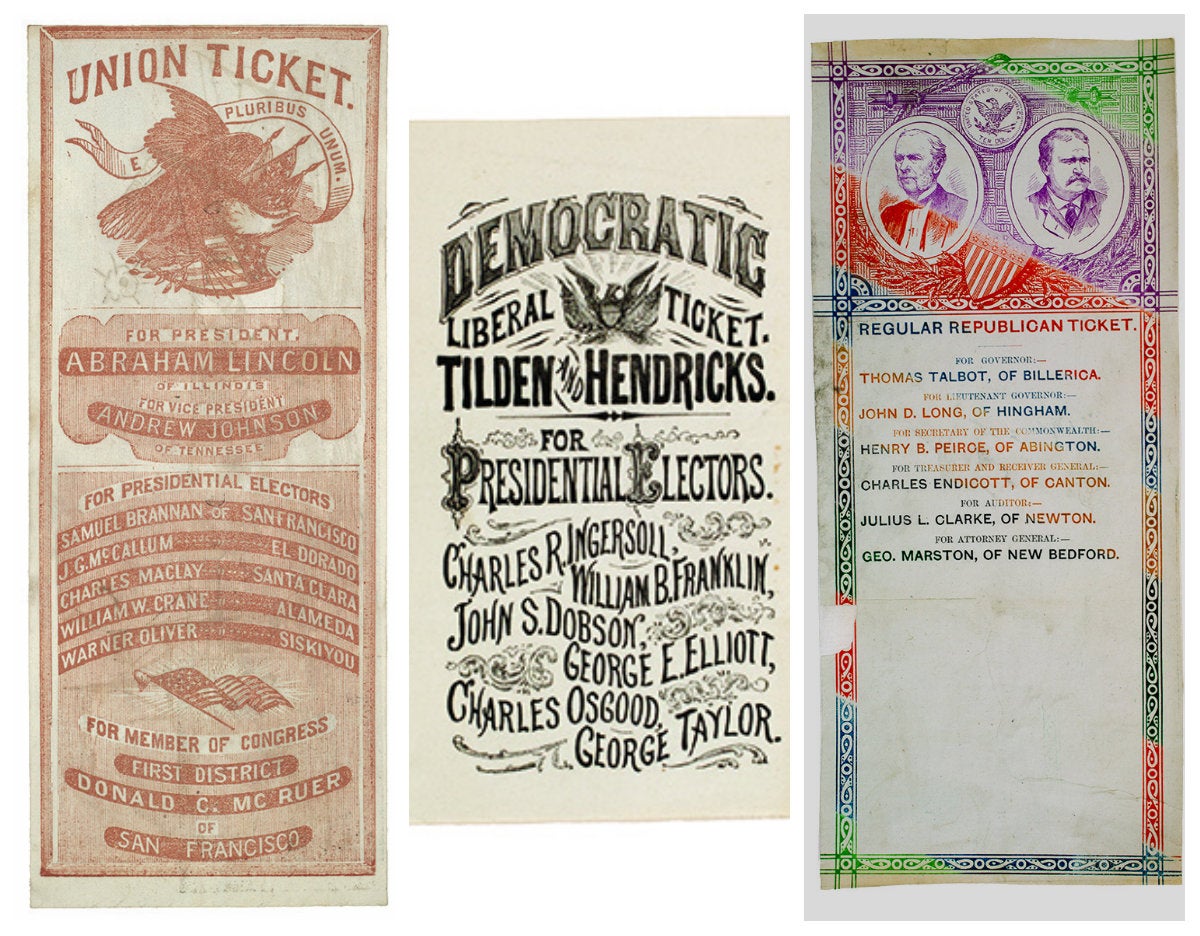 UNION TICKET.
E.
PLURIBUS
UNUM.
FOR PRESIDENT.
ABRAHAM LINCOLN
OF ILLINOIS
FOR VICE PRESIDENT
ANDREW JOHNSON
OF TENNESSEE
FOR PRESIDENTIAL ELECTORS
SAMUEL BRANNAN OF SAN FRANCISCO
J. G. McCALLUM EL DORADO
CHARLES MACLAY SANTA CLARA
WILLIAM W. CRANE ALAMEDA
WARNER OLIVER SISKIYOU
FOR MEMBER OF CONGRESS
FIRST DISTRICT
DONALD C. MC RUER
OF
SAN FRANCISCO
DEMOCRATIC
LIBERAL TICKET.
TILDEN AND HENDRICKS.
FOR
PRESIDENTIAL ELECTORS.
CHARLES R. INGERSOLL,
WILLIAM B. FRANKLIN,
JOHN S. DOBSON,
GEORGE E. ELLIOTT,
CHARLES OSGOOD,
GEORGE TAYLOR.
UNITED STATES OF AMERICA
TEN DOL.
REGULAR REPUBLICAN TICKET.
FOR GOVERNOR:—
THOMAS TALBOT, OF BILLERICA.
FOR LIEUTENANT GOVERNOR:—
JOHN D. LONG, OF HINGHAM.
FOR SECRETARY OF THE COMMONWEALTH:—
HENRY B. PEIRCE, OF ABINGTON.
FOR TREASURER AND RECEIVER GENERAL:—
CHARLES ENDICOTT, OF CANTON.
FOR AUDITOR:—
JULIUS L. CLARKE, OF NEWTON.
FOR ATTORNEY GENERAL:—
GEO. MARSTON, OF NEW BEDFORD.